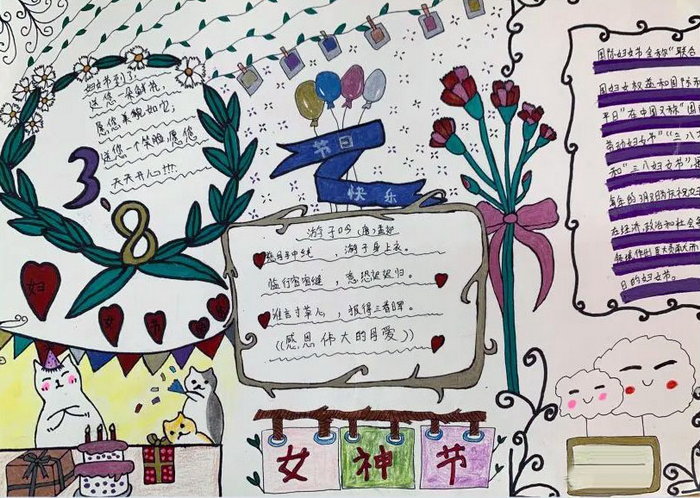 妇女节到了
送您一朵鲜花
愿您美貌如它;
送您一个笑脸愿您
天天开心!!!
3.8
妇女
节日
快乐
游子吟(唐)孟郊
慈母手中线，游子身上衣。
临行密密缝，意恐迟迟归。
谁言寸草心，报得三春晖。
((感恩伟大的母爱))
女神节
国际妇女节全称"联合
国妇女权益和国际和
平日"在中国又称"国
劳动妇女节""三八
和"三八妇女节",
每年的3月8日为庆祝妇女
在经济,政治和社会等
领域作出重大贡献而
日的妇女节。